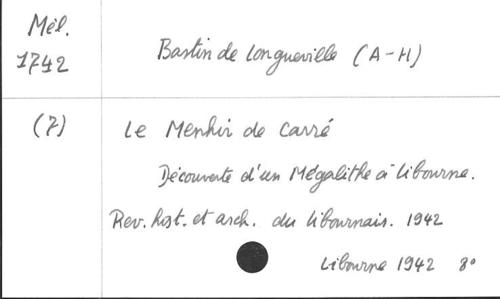 Mél.
1742
Bastin de Longueville (A-H)
(7)
Le Menhir de Carré
Découverte d'un Mégalithe à Libourne.
Rev. hist. et arch. du libournais. 1942
Libourne 1942 8°